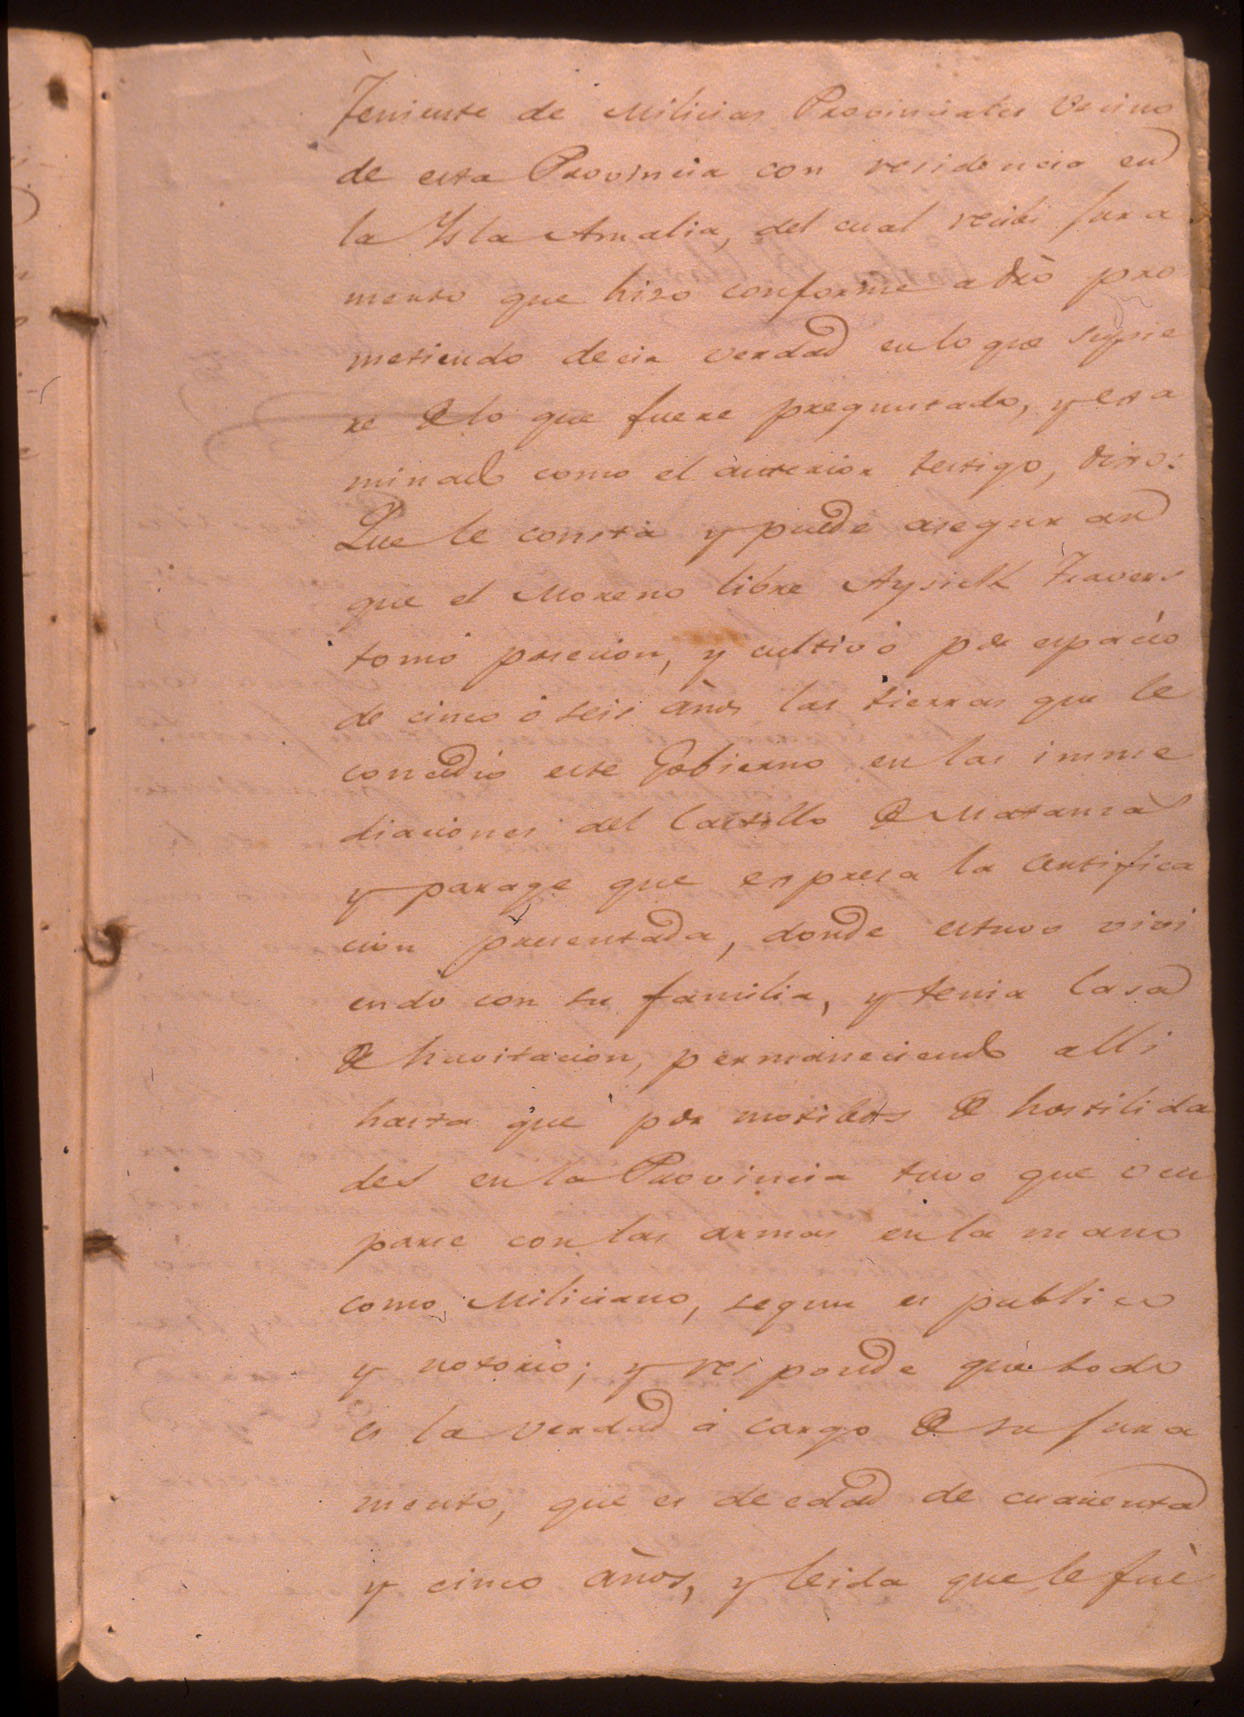 Teniente de Milicias Provinciales Vecino
de esta Provincia con residencia en
la Ysla Amalia, del cual recibi jura
mento que hizo conforme a dro pro
metiendo decir verdad en lo que supie
re de lo que fuere preguntado, y esa
minado como el anterior testigo, dixo:
Que le consta y puede asegurar
que el Moreno libre Aysick Travers
tomó posecion, y cultivó por espacio
de cinco ó seis años las tierras que le
concedio este Gobierno en las inme
diaciones del Castillo de Matanza
y parage que espresa la Certifica
cion presentada, donde estuvo vivi
endo con su familia, y tenia Casa
de havitacion, permaneciendo alli
hasta que por motibos de hostilida
des en la Provincia tuvo que ocu
parse con las armas en la mano
como Miliciano, segun es publico
y notorio; y responde que todo
es la verdad á cargo de su jura
mento, que es de edad de cuarenta
y cinco años, y leida que le fué